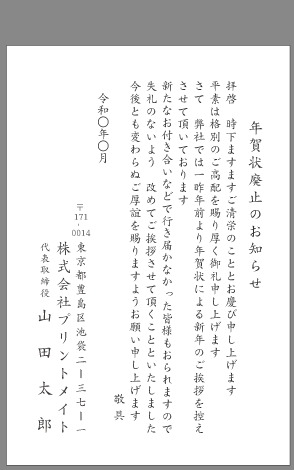 年賀状廃止のお知らせ
拝啓　時下ますますご清栄のこととお慶び申し上げます
平素は格別のご高配を賜り厚く御礼申し上げます
さて　弊社では一昨年前より年賀状による新年のご挨拶を控え
させて頂いております
新たなお付き合いなどで行き届かなかった皆様もおられますので
失礼のないよう　改めてご挨拶させて頂くことといたしました
今後とも変わらぬご厚誼を賜りますようお願い申し上げます
敬具
令和〇年〇月
〒171-0014
東京都豊島区池袋二ー三七ー一
株式会社プリントメイト
代表取締役　山田太郎